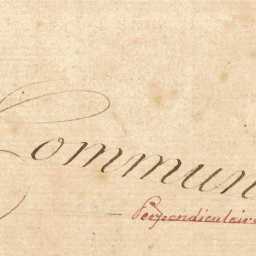 Commun
Perpendiculaire